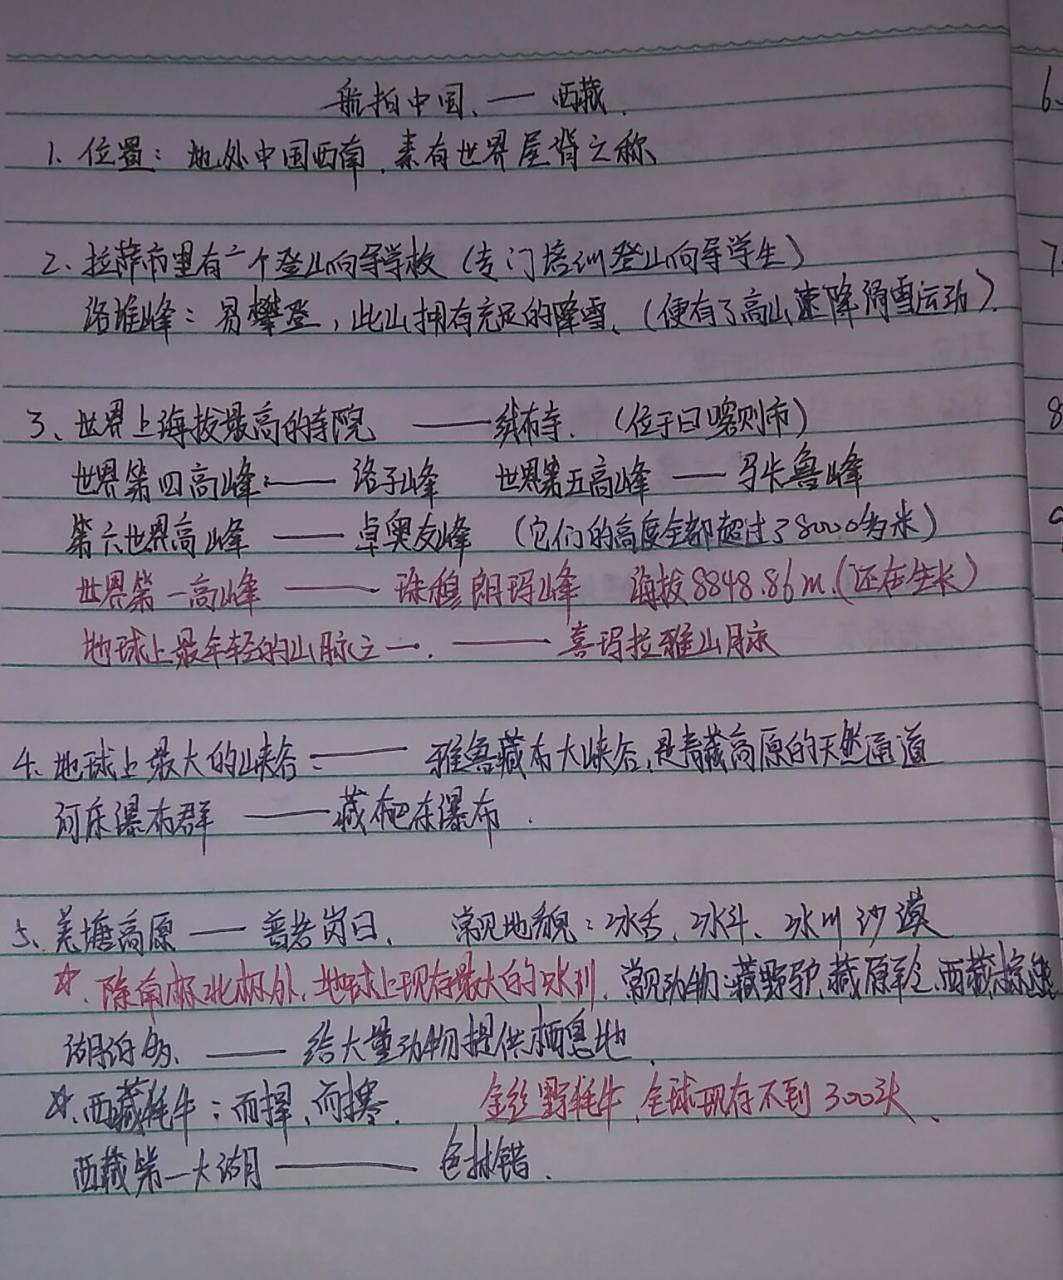 航拍中国、— 西藏
1、位置：地处中国西南，素有世界屋脊之称
2、拉萨市里有一个登山向导学校（专门培训登山向导学生）
洛堆峰：易攀登，此山拥有充足的降雪、（便有了高山速降滑雪运动）
3、世界上海拔最高的寺院 —— 绒布寺.（位于日喀则市）
世界第四高峰：—— 洛子峰 世界第五高峰 —— 马卡鲁峰
第六世界高峰 —— 卓奥友峰 （它们的高度全都超过了8000多米）
世界第一高峰 —— 珠穆朗玛峰 海拔8848.86m.（还在生长）
地球上最年轻的山脉之一. —— 喜玛拉雅山脉
4、地球上最大的峡谷：—— 雅鲁藏布大峡谷，是青藏高原的天然通道
河床瀑布群 —— 藏布巴东瀑布.
5、羌塘高原 —— 普若岗日、 常见地貌：冰舌、冰斗、冰川 沙漠
☆、除南极北极外，地球上现存最大的冰川. 常见动物：藏野驴、藏原羚、西藏棕熊
湖泊多、—— 给大量动物提供栖息地.
☆、西藏牦牛：而寒. 金丝野牦牛，全球现存不到300头、
西藏第一大湖 —— 色林错.
6.
7.
8
9